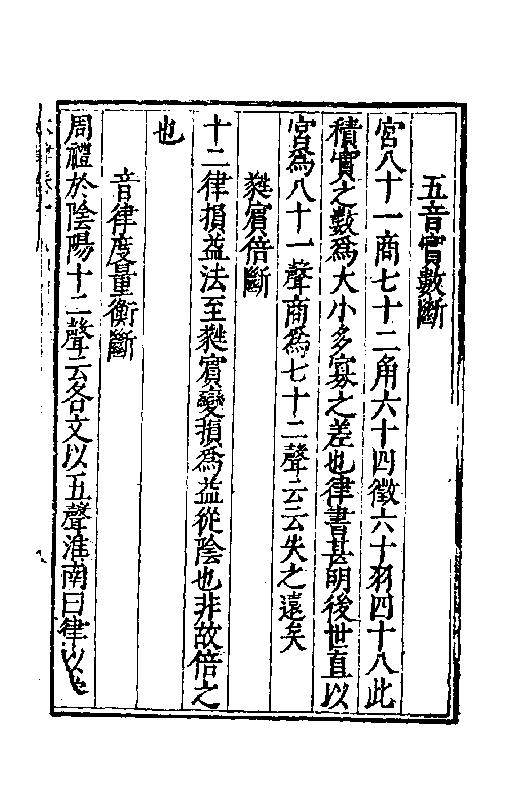 五音實數斷
宮八十一商七十二角六十四徵六十羽四十八此
積實之數為大小多寡之差也律書甚明後世直以
宮為八十一聲商為七十二聲云云失之遠矣
蕤賓倍斷
十二律損益法至蕤賓變損為益從陰也非故倍之
也
音律度量衡斷
周禮於陰陽十二聲云各文以五聲淮南曰律以